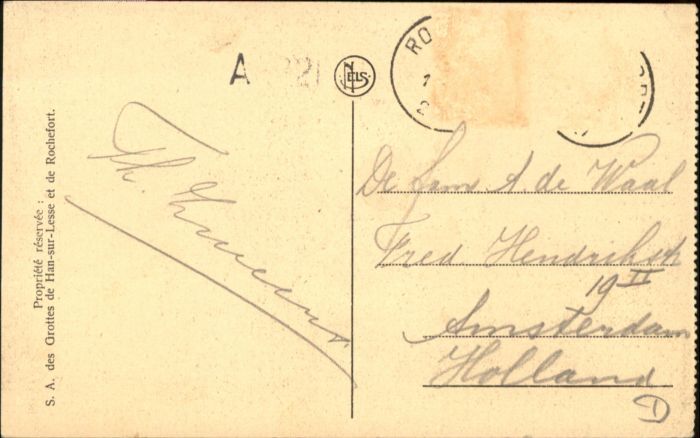 Propriété réservée :
S. A. des Grottes de Han-sur-Lesse et de Rochefort.
A
NELS
RO
1
2
Th.
De Fam A. de Waal
Fred Hendrikstr
19 II
Amsterdam
Holland
D